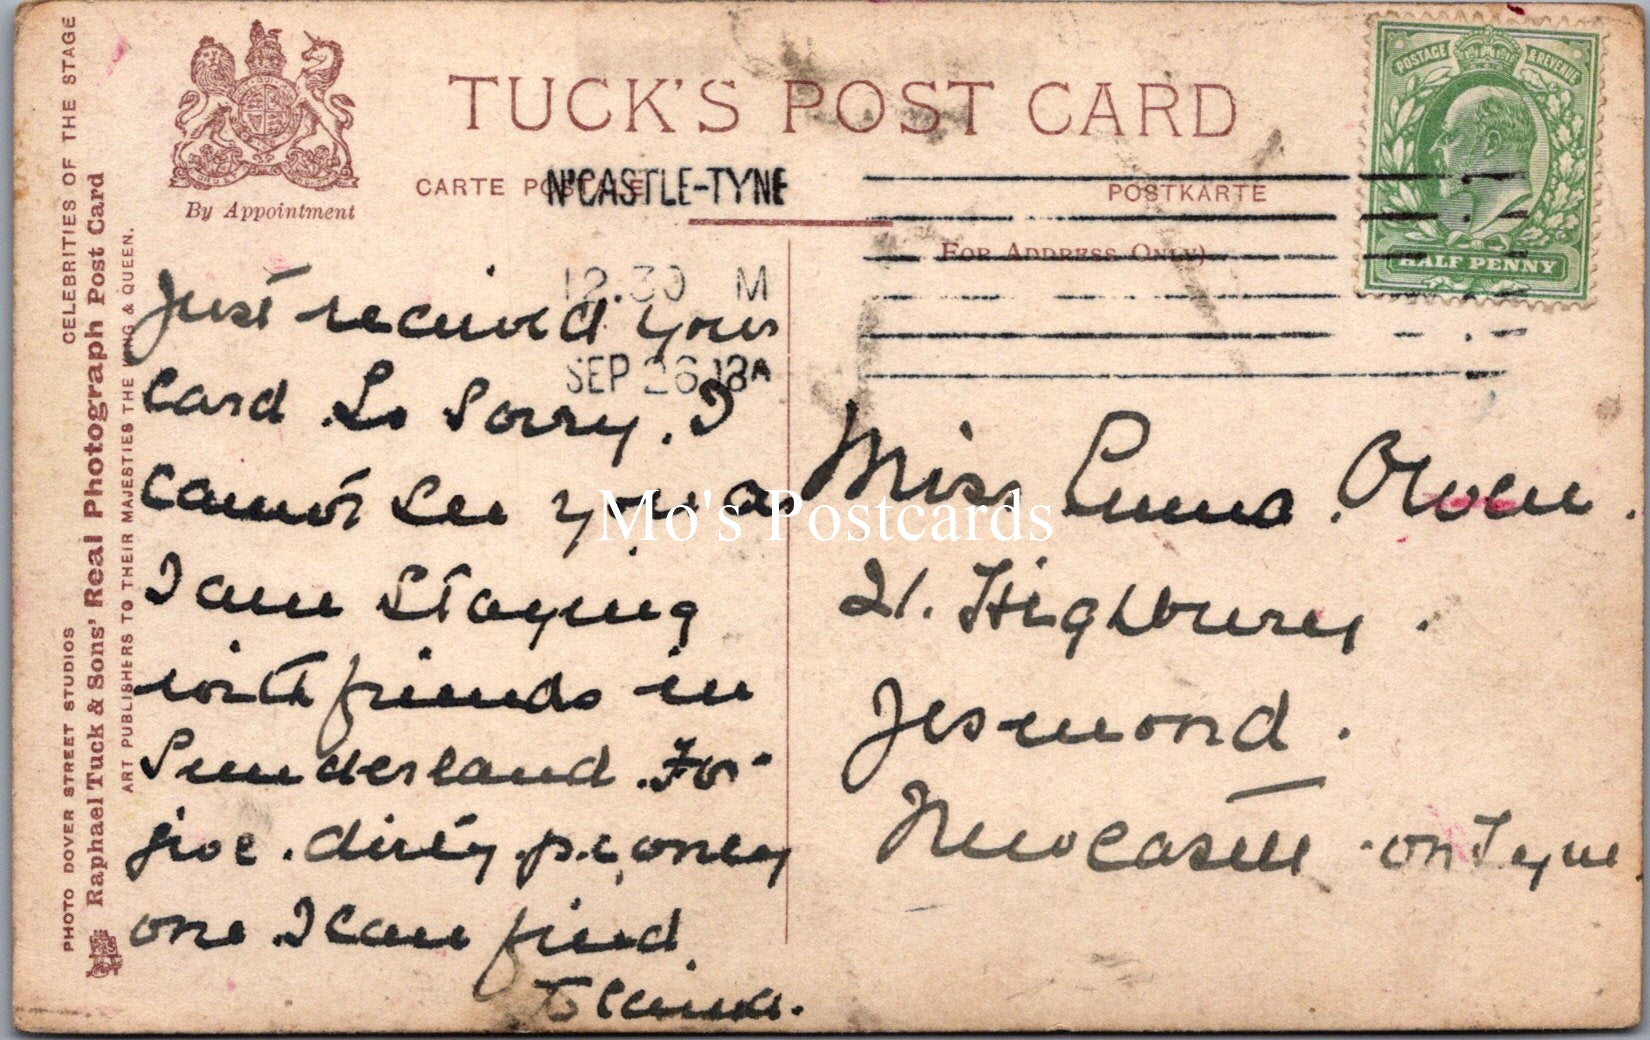 TUCK'S POST CARD
CARTE POSTALE
POSTKARTE
(For Address Only)
By Appointment
N'CASTLE-TYNE
12.30 M
SEP 26
POSTAGE & REVENUE
HALF PENNY
CELEBRITIES OF THE STAGE
PHOTO DOVER STREET STUDIOS
Raphael Tuck & Sons' Real Photograph Post Card
ART PUBLISHERS TO THEIR MAJESTIES THE KING & QUEEN.
Just received your
card. So Sorry. I
cannot see you as
I am staying
with friends in
Sunderland. For-
give. dirty p.c, only
one. I can find
Miss Owen.
21. Highbury.
Jesmond.
Newcastle-on Tyne
Mo's Postcards